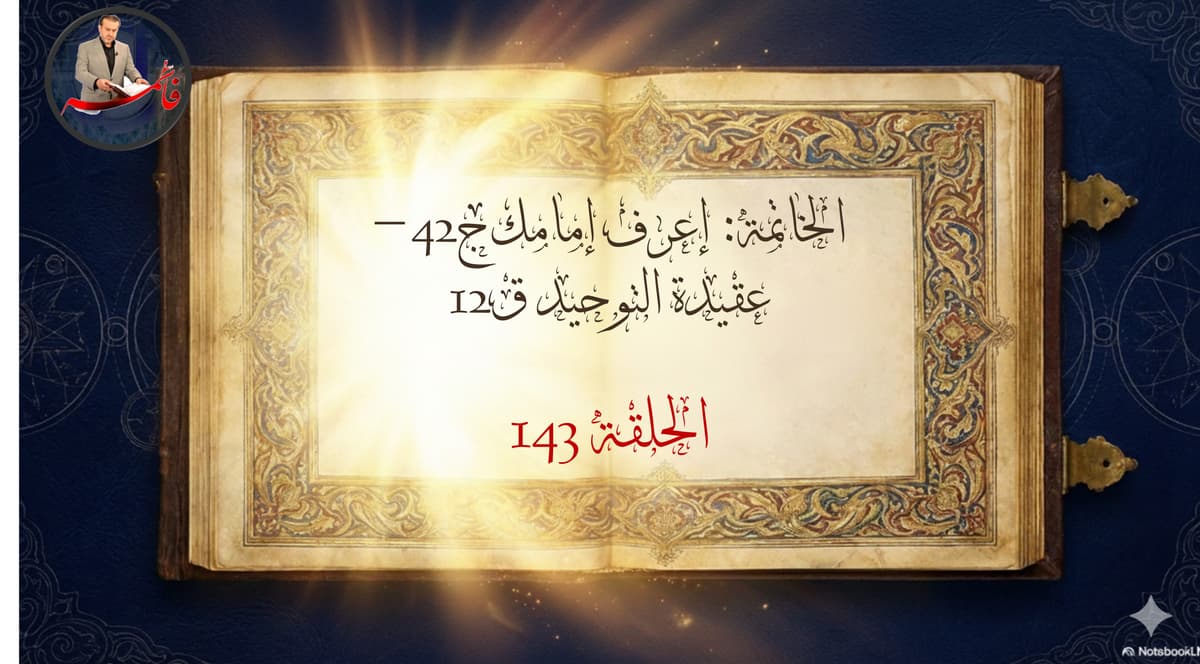 فاطمة
الخاتمة: إعرف إمامك ج42 –
عقيدة التوحيد ق12
الحلقة 143
NotebookLM